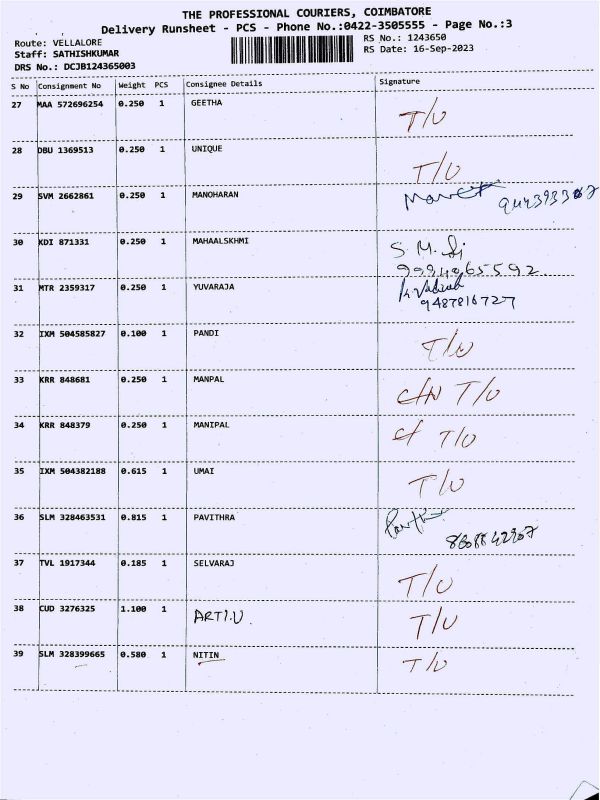 THE PROFESSIONAL COURIERS, COIMBATORE
Delivery Runsheet - PCS - Phone No.:0422-3505555 - Page No.:3
Route: VELLALORE
RS No.: 1243650
Staff: SATHISHKUMAR
RS Date: 16-Sep-2023
DRS No.: DCJB124365003
S No Consignment No Weight PCS Consignee Details Signature
27 MAA 572696254 0.250 1 GEETHA T/U
28 DBU 1369513 0.250 1 UNIQUE T/U
29 SVM 2662861 0.250 1 MANOHARAN
30 KDI 871331 0.250 1 MAHAALSKHMI S.M.
9994865592
31 MTR 2359317 0.250 1 YUVARAJA
9487816727
32 IXM 504585827 0.100 1 PANDI T/U
33 KRR 848681 0.250 1 MANPAL C/N T/U
34 KRR 848379 0.250 1 MANIPAL T/U
35 IXM 504382188 0.615 1 UMAI T/U
36 SLM 328463531 0.815 1 PAVITHRA
37 TVL 1917344 0.185 1 SELVARAJ T/U
38 CUD 3276325 1.100 1 ARTI.U T/U
39 SLM 328399665 0.580 1 NITIN T/U